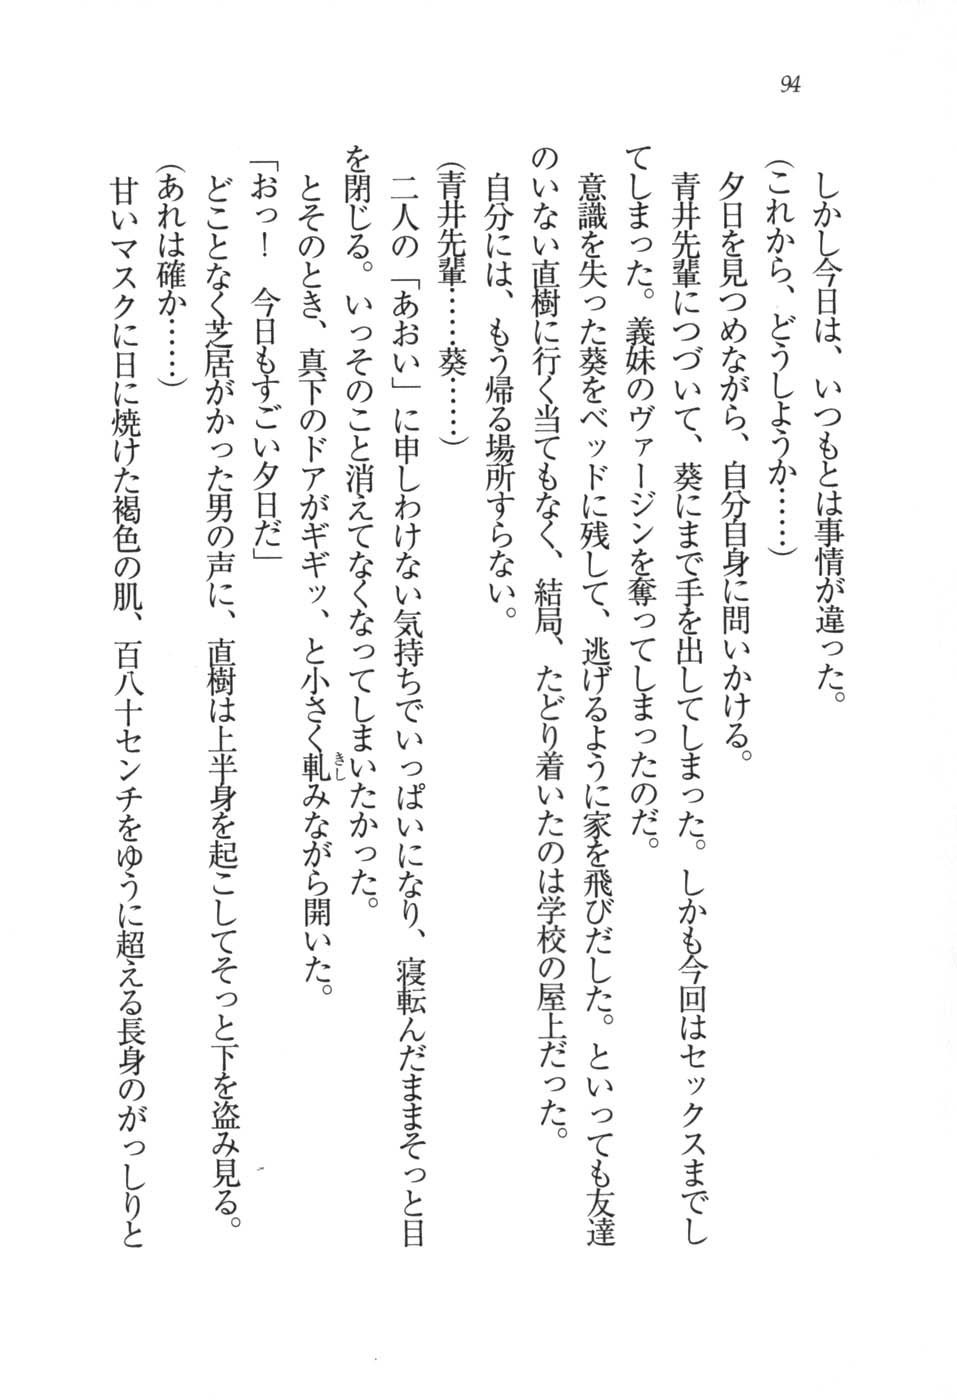 94
しかし今日は、いつもとは事情が違った。
(これから、どうしようか……)
夕日を見つめながら、自分自身に問いかける。
青井先輩につづいて、葵にまで手を出してしまった。しかも今回はセックスまでし
てしまった。義妹のヴァージンを奪ってしまったのだ。
意識を失った葵をベッドに残して、逃げるように家を飛びだした。といっても友達
のいない直樹に行く当てもなく、結局、たどり着いたのは学校の屋上だった。
自分には、もう帰る場所すらない。
(青井先輩……葵……)
二人の「あおい」に申しわけない気持ちでいっぱいになり、寝転んだままそっと目
を閉じる。いっそのこと消えてなくなってしまいたかった。
とそのとき、真下のドアがギギッ、と小さく軋きしみながら開いた。
「おっ！　今日もすごい夕日だ」
どことなく芝居がかった男の声に、直樹は上半身を起こしてそっと下を盗み見る。
(あれは確か……)
甘いマスクに日に焼けた褐色の肌、百八十センチをゆうに超える長身のがっしりと